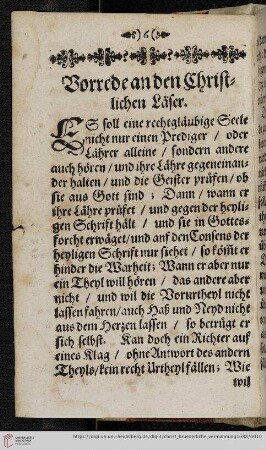 6
Vorrede an den Christ-
lichen Läser.
ES soll eine rechtgläubige Seele
nicht nur einen Prediger / oder
Lährer alleine / sondern andere
auch hören / und ihre Lähre gegeneinan-
der halten / und die Geister prüfen / ob
sie aus Gott sind ; Dann / wann er
ihre Lähre prüfet / und gegen der heyli-
gen Schrift hält / und sie in Gottes-
forcht erwäget / und auf den Consens der
heyligen Schrift nur siehet / so kömt er
hinder die Warheit ; Wann er aber nur
ein Theyl will hören / das andere aber
nicht / und wil die Vorurtheyl nicht
lassen fahren / auch Haß und Neyd nicht
aus dem Herzen lassen / so betrügt er
sich selbst. Kan doch ein Richter auf
eines Klag / ohne Antwort des andern
Theyls / kein recht Urtheyl fällen ; Wie
wil